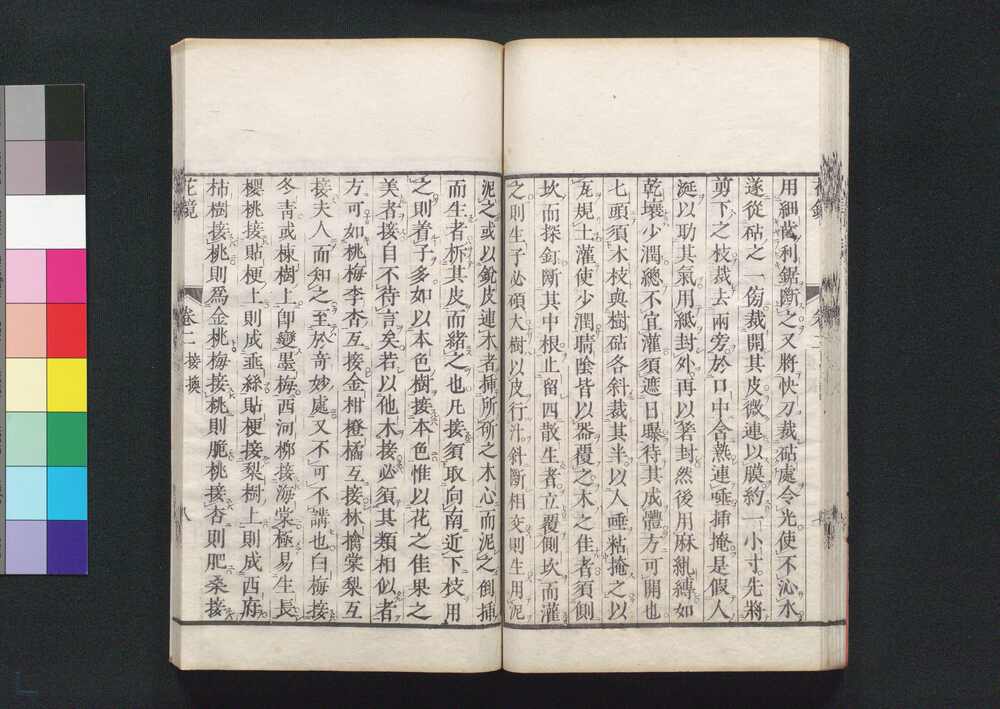 用細齒利鋸斷之又將快刀裁砧處令光使不沁水
遂從砧之一傍裁開其皮微連以膜約一小寸先將
剪下之枝裁去兩旁於口中含熱連唾揷掩是假人
涎以功其氣用紙封外再以箬封然後用麻紮縛如
乾壤少潤總不宜灌須遮日曝待其成體方可開也
七頭須木枝與樹砧各斜裁其半以人唾粘掩之以
瓦規土灌使少潤晴陰皆以器覆之木之佳者須側
坎而探釘斷其中根止留四散生者立覆側坎而灌
之則生子必碩大樹以皮行汁斜斷相交則生用泥
泥之或以銳皮連木者揷所斫之木心而泥之倒揷
而生者柝其皮而緒之也凡接須取向南近下枝用
之則着子多如以本色樹接本色惟以花之佳果之
美者接自不待言矣若以他木接必須其類相似者
方可如桃梅李杏互接金柑橙橘互接林擒棠梨互
接夫人而知之至於奇妙處又不可不講也白梅接
冬青或楝樹上卽變墨梅西河栁接海棠極易生長
櫻桃接貼梗上則成垂絲貼梗接梨樹上則成西府
枯樹接桃則爲金桃梅接桃則脆桃接杏則肥桑接
花鏡 卷二 接換 八